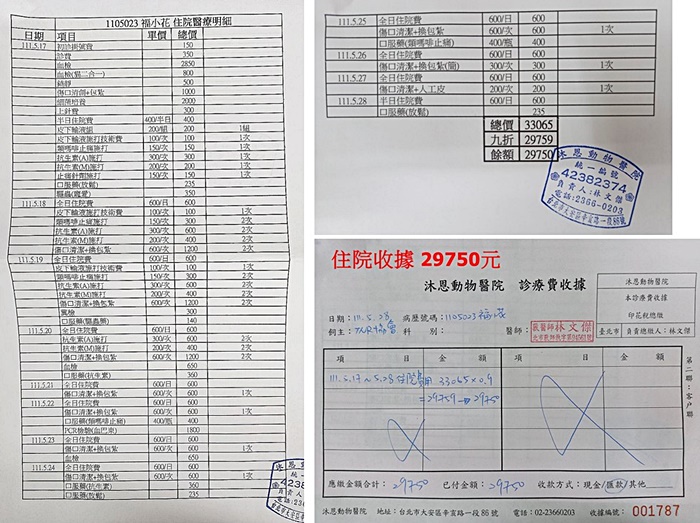 1105023 福小花 住院醫療明細
日期 項目 單價 總價
111.5.17 初診掛號費 150
診費 350
血檢 2850
血檢(貓二合一) 800
鎮靜 500
傷口清創+包紮 1000
細菌培養 2000
上針費 300
半日住院費 400/半日 400
皮下輸液組 200/組 200 1組
皮下輸液施打技術費 100/次 100 1次
類嗎啡止痛施打 150/次 150 1次
抗生素(A)施打 300/次 300 1次
抗生素(M)施打 200/次 200 1次
止痛針劑施打 150/次 150 1次
口服藥(放鬆) 235
驅蟲(寵愛) 350
111.5.18 全日住院費 600/日 600
皮下輸液施打技術費 100/次 100 1次
類嗎啡止痛施打 150/次 300 2次
抗生素(A)施打 300/次 600 2次
抗生素(M)施打 200/次 400 2次
傷口清潔+換包紮 600/次 1200 2次
111.5.19 全日住院費 600/日 600
皮下輸液施打技術費 100/次 100 1次
類嗎啡止痛施打 150/次 300 2次
抗生素(A)施打 300/次 600 2次
抗生素(M)施打 200/次 400 2次
傷口清潔+換包紮 600/次 1200 2次
糞檢 300
口服藥(驅蟲藥) 140
111.5.20 全日住院費 600/日 600
抗生素(A)施打 300/次 600 2次
抗生素(M)施打 200/次 400 2次
傷口清潔+換包紮 600/次 1200 2次
血檢 650
口服藥(抗生素) 360
111.5.21 全日住院費 600/日 600
傷口清潔+換包紮 600/次 600 1次
111.5.22 全日住院費 600/日 600
傷口清潔+換包紮 600/次 600 1次
口服藥(類嗎啡止痛) 400/瓶 400
PCR檢驗(血巴東) 1800
111.5.23 全日住院費 600/日 600
傷口清潔+換包紮 600/次 600 1次
血檢 650
111.5.24 全日住院費 600/日 600
傷口清潔+換包紮 600/次 600 1次
口服藥(抗生素) 360
口服藥(放鬆) 235
111.5.25 全日住院費 600/日 600
傷口清潔+換包紮 600/次 600 1次
口服藥(類嗎啡止痛) 400/瓶 400
111.5.26 全日住院費 600/日 600
傷口清潔+換包紮(簡) 300/次 300 1次
111.5.27 全日住院費 600/日 600
傷口清潔+人工皮 200/次 200 1次
111.5.28 半日住院費 600/日 600
口服藥(放鬆) 235
總價 33065
九折 29759
餘額 29750
沐恩動物醫院
統一編號
42382374
負責人:林文傑
電話:2366-0203
台北市大安區辛亥路一段86號
住院收據 29750元
沐恩動物醫院 診療費收據
沐恩動物醫院
本診療費收據
印花稅總繳
臺北市 負責總繳人:林文傑
日期:111.5.28 病歷號碼:1105023福小花
飼主:TNR協會 科別: 醫師:
獸醫師林文傑
項目 金額 項目 金額
111.5.17~5.28住院費用 33065×0.9
=29759 → 29750
第二聯:客戶聯
應繳金額合計:29750 已付金額:29750 收款方式:現金/匯款/其他
沐恩動物醫院 地址:台北市大安區辛亥路一段86號 電話:02-23660203 收據編號: 001787